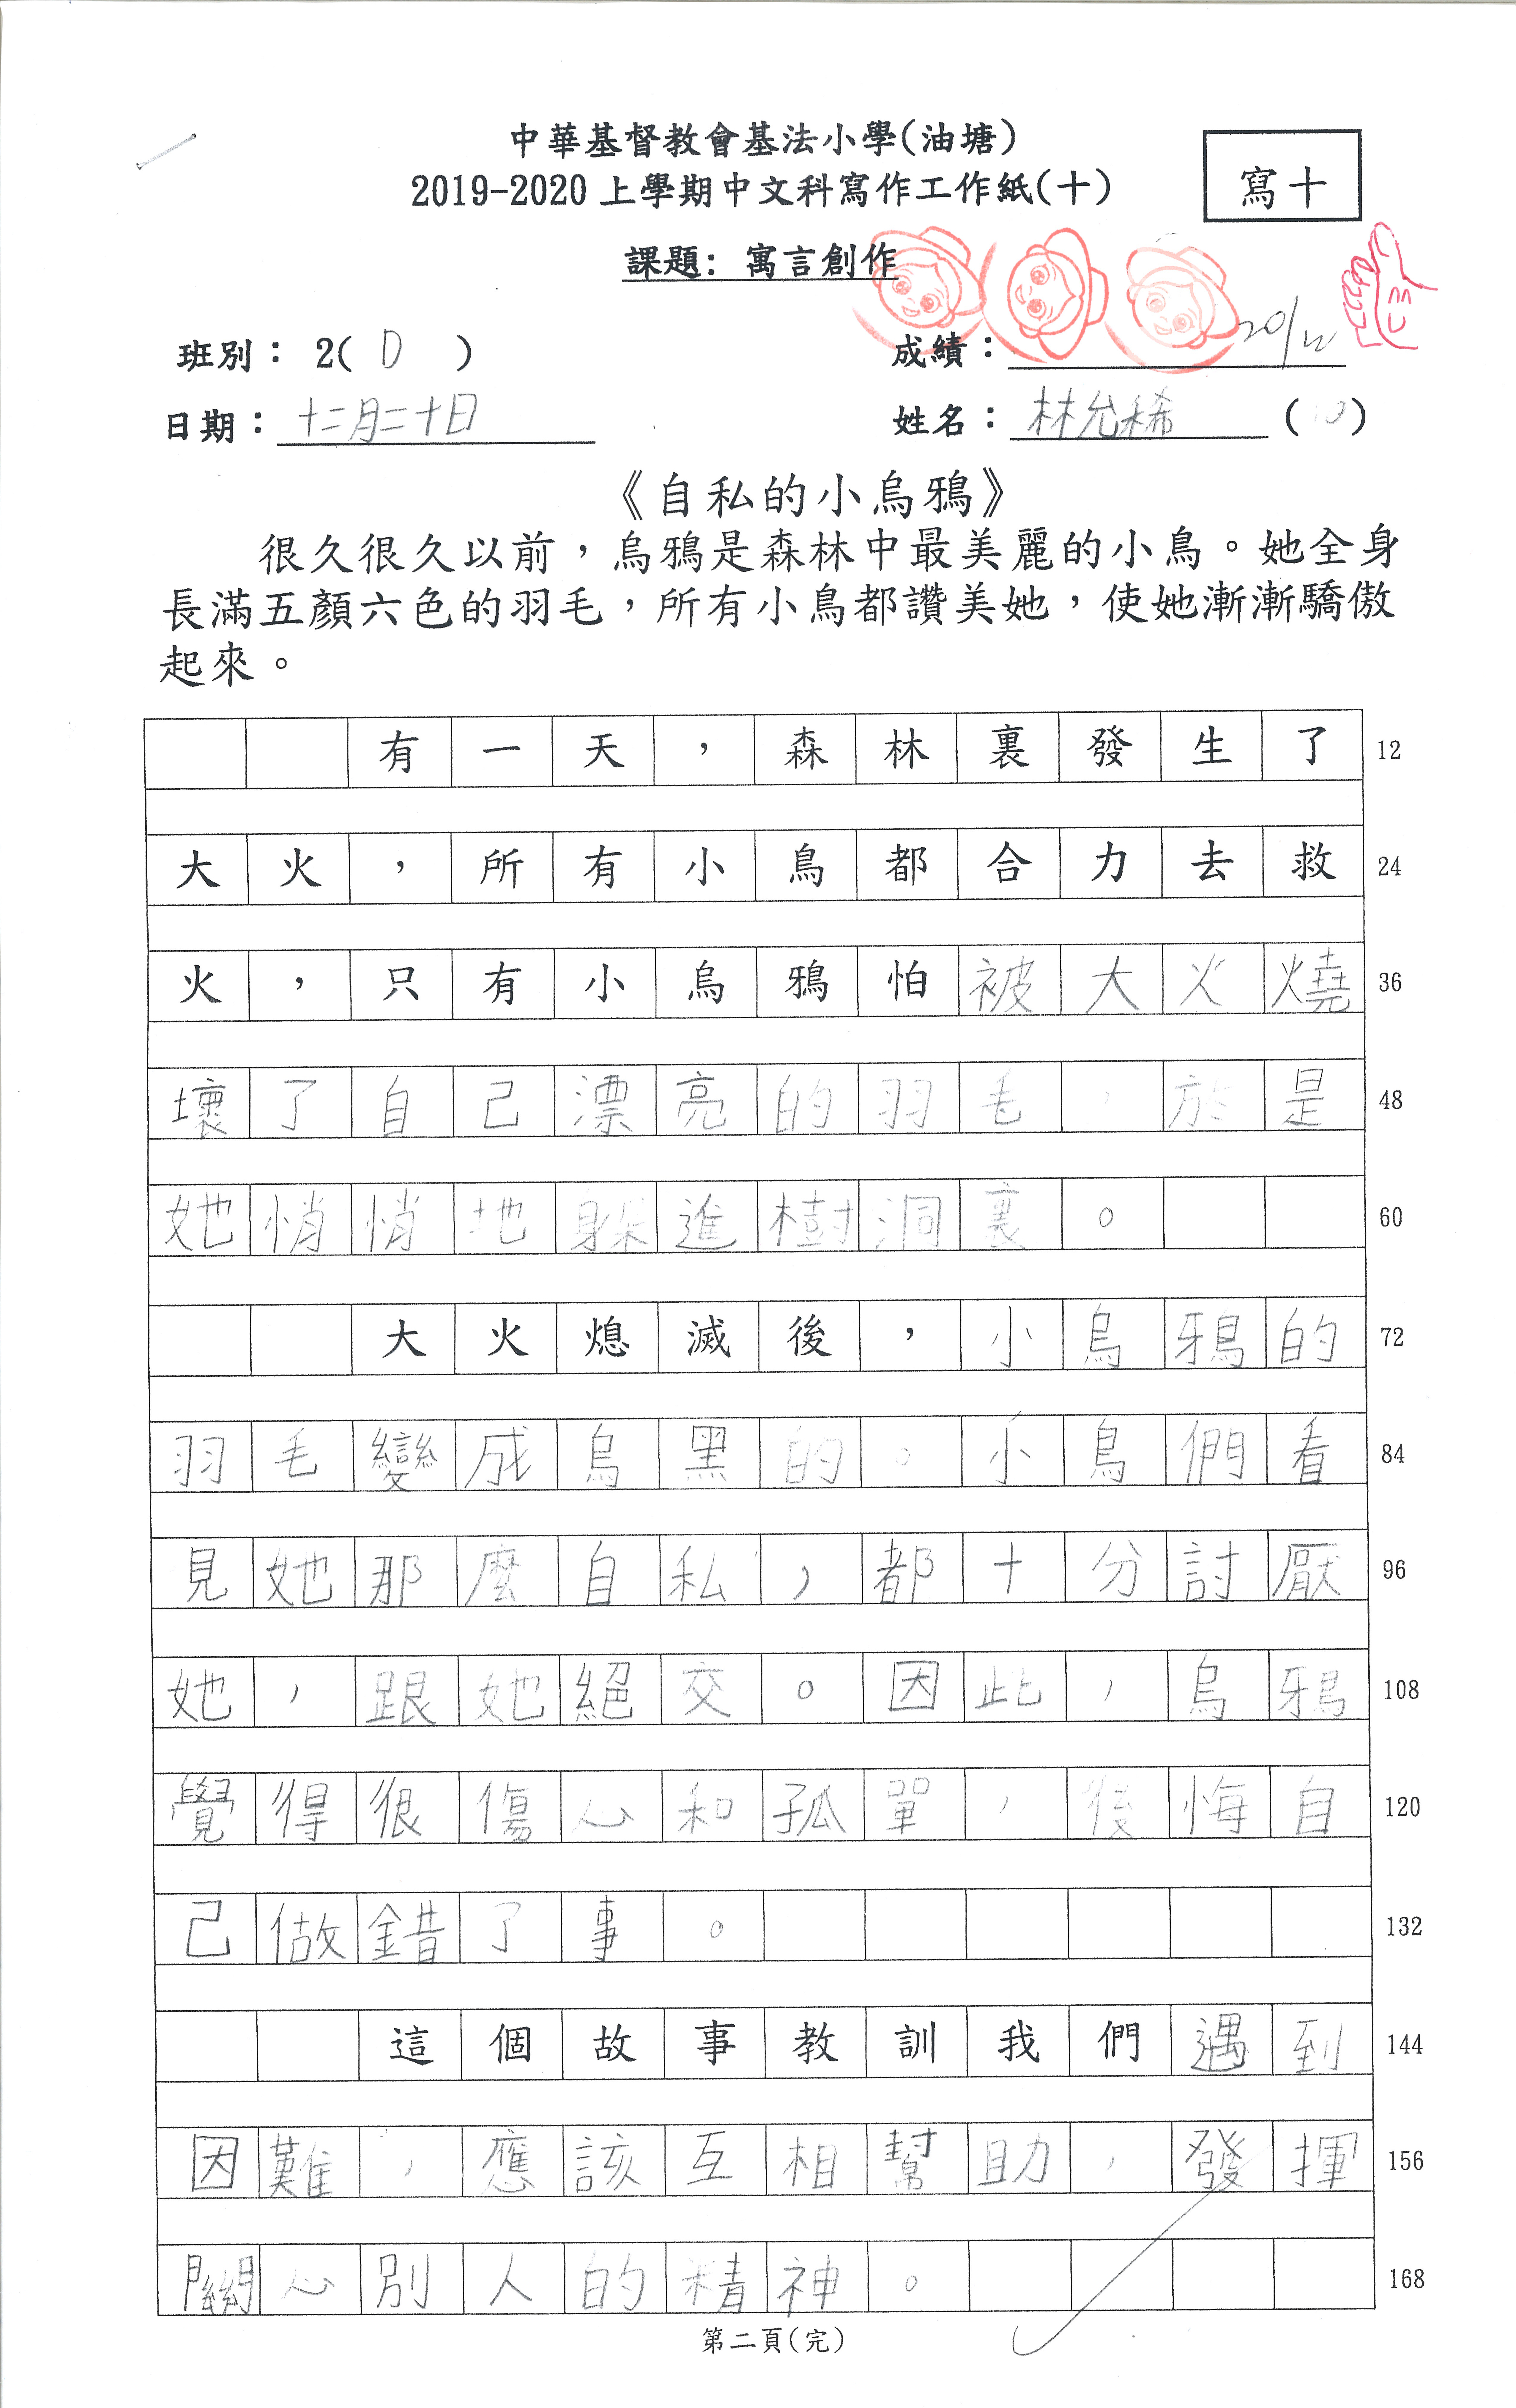 中華基督教會基法小學(油塘)
2019-2020 上學期中文科寫作工作紙(十)
寫十
課題: 寓言創作
班別: 2( D )
成績: 20/12
日期: 十二月二十日
姓名: 林允稀 (10)
《自私的小烏鴉》
很久很久以前,烏鴉是森林中最美麗的小鳥。她全身
長滿五顏六色的羽毛,所有小鳥都讚美她,使她漸漸驕傲
起來。
有一天,森林裏發生了 12
大火,所有小鳥都合力去救 24
火,只有小烏鴉怕被大火燒 36
壞了自己漂亮的羽毛,於是 48
她悄悄地躲進樹洞裏。 60
大火熄滅後,小烏鴉的 72
羽毛變成烏黑的。小鳥們看 84
見她那麼自私,都十分討厭 96
她,跟她絕交。因此,烏鴉 108
覺得很傷心和孤單,後悔自 120
己做錯了事。 132
這個故事教訓我們遇到 144
因難,應該互相幫助,發揮 156
關心別人的精神。 168
第二頁(完)